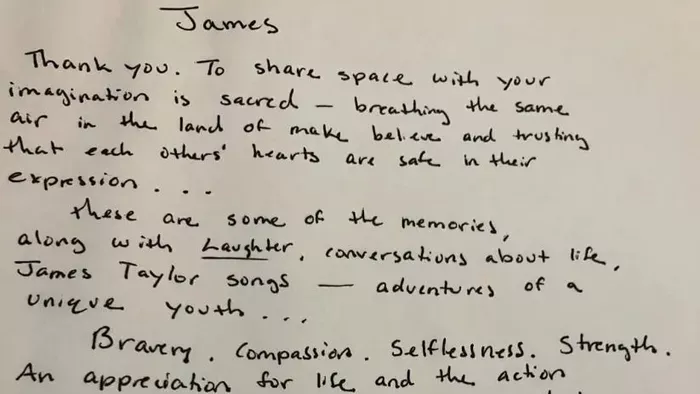 James
Thank you. To share space with your
imagination is sacred — breathing the same
air in the land of make believe and trusting
that each others' hearts are safe in their
expression . . .
these are some of the memories,
along with Laughter, conversations about life,
James Taylor songs — adventures of a
unique youth . . .
Bravery. Compassion. Selflessness. Strength.
An appreciation for life and the action